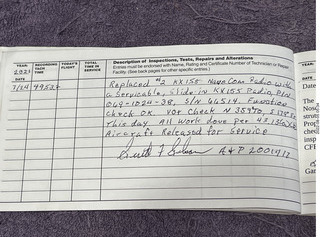 YEAR: 2023
RECORDING TACH TIME
TODAY'S FLIGHT
TOTAL TIME IN SERVICE
Description of Inspections, Tests, Repairs and Alterations
Entries must be endorsed with Name, Rating and Certificate Number of Technician or Repair Facility. (See back pages for other specific entries.)
DATE
7/14
Replaced #2 KX155 Nav/Com Radio with
a Servicable, Slide in KX155 Radio, P/N
069-1024-38, S/N 44514. Function
Check OK. VOR Check N
This day. All work done per 43.13
Aircraft Released for Service
A&P
YEAR:
DATE